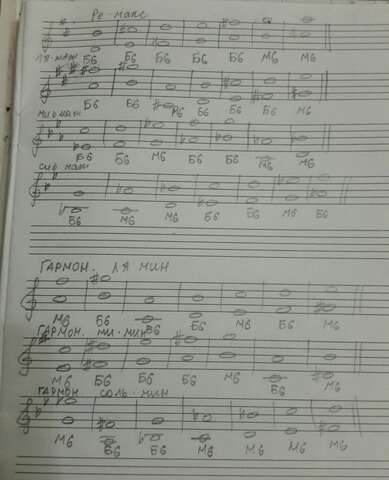 Ре маж
Б6 Б6 Б6 Б6 Б6 М6 М6
ля-маж
Б6 Б6 Б6 Б6 Б6 М6
Б6 Б6 М6 Б6 Б6 М6 М6
сиb маж
Б6 М6 М6 Б6 Б6 М6 Б6
ГАРМОН. ЛЯ МИН
М6 Б6 Б6 Б6 М6 М6 М6
ГАРМОН. МИ-МИН
М6 Б6 Б6 Б6 М6 Б6 М6
ГАРМОН СОЛЬ-МИН
М6 Б6 Б6 М6 М6 М6 М6